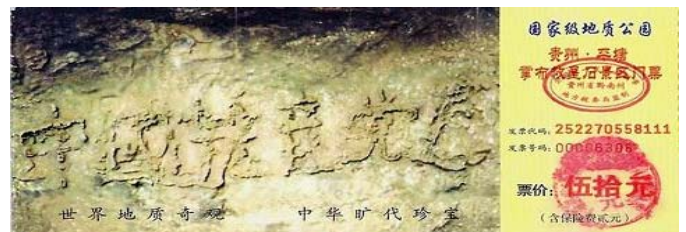 中国共产党
世界地质奇观 中华旷代珍宝
国家级地质公园
贵州·平塘
掌布救星石景区门票
贵州省黔南州
发票代码:252270558111
发票号码:00006306
票价:伍拾元
(含保险费贰元)